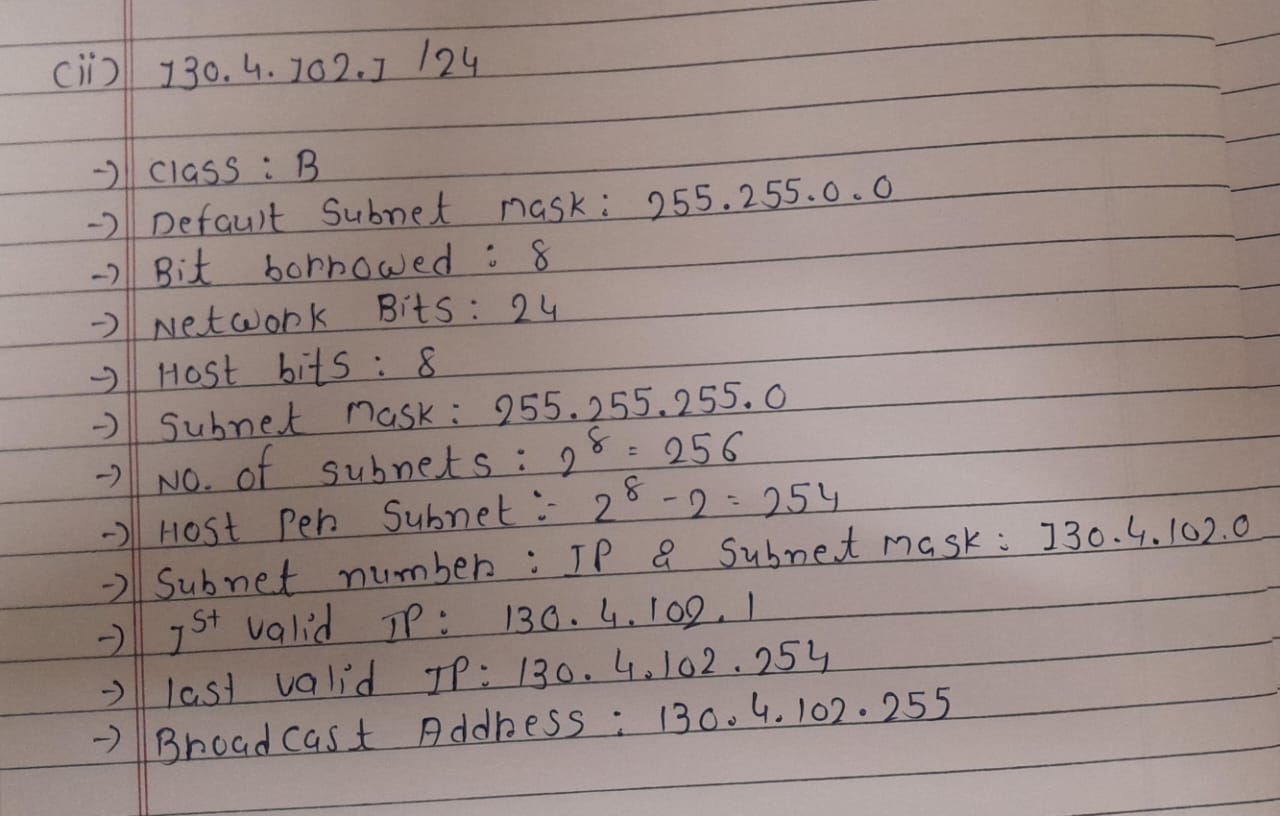 (ii) 130.4.102.1 /24
-> Class : B
-> Default Subnet Mask : 255.255.0.0
-> Bit borrowed : 8
-> Network Bits : 24
-> Host bits : 8
-> Subnet Mask : 255.255.255.0
-> No. of subnets : 2⁸ = 256
-> Host Per Subnet :- 2⁸ - 2 = 254
-> Subnet number : IP & Subnet mask : 130.4.102.0
-> 1st valid IP : 130.4.102.1
-> last valid IP : 130.4.102.254
-> Broadcast Address : 130.4.102.255